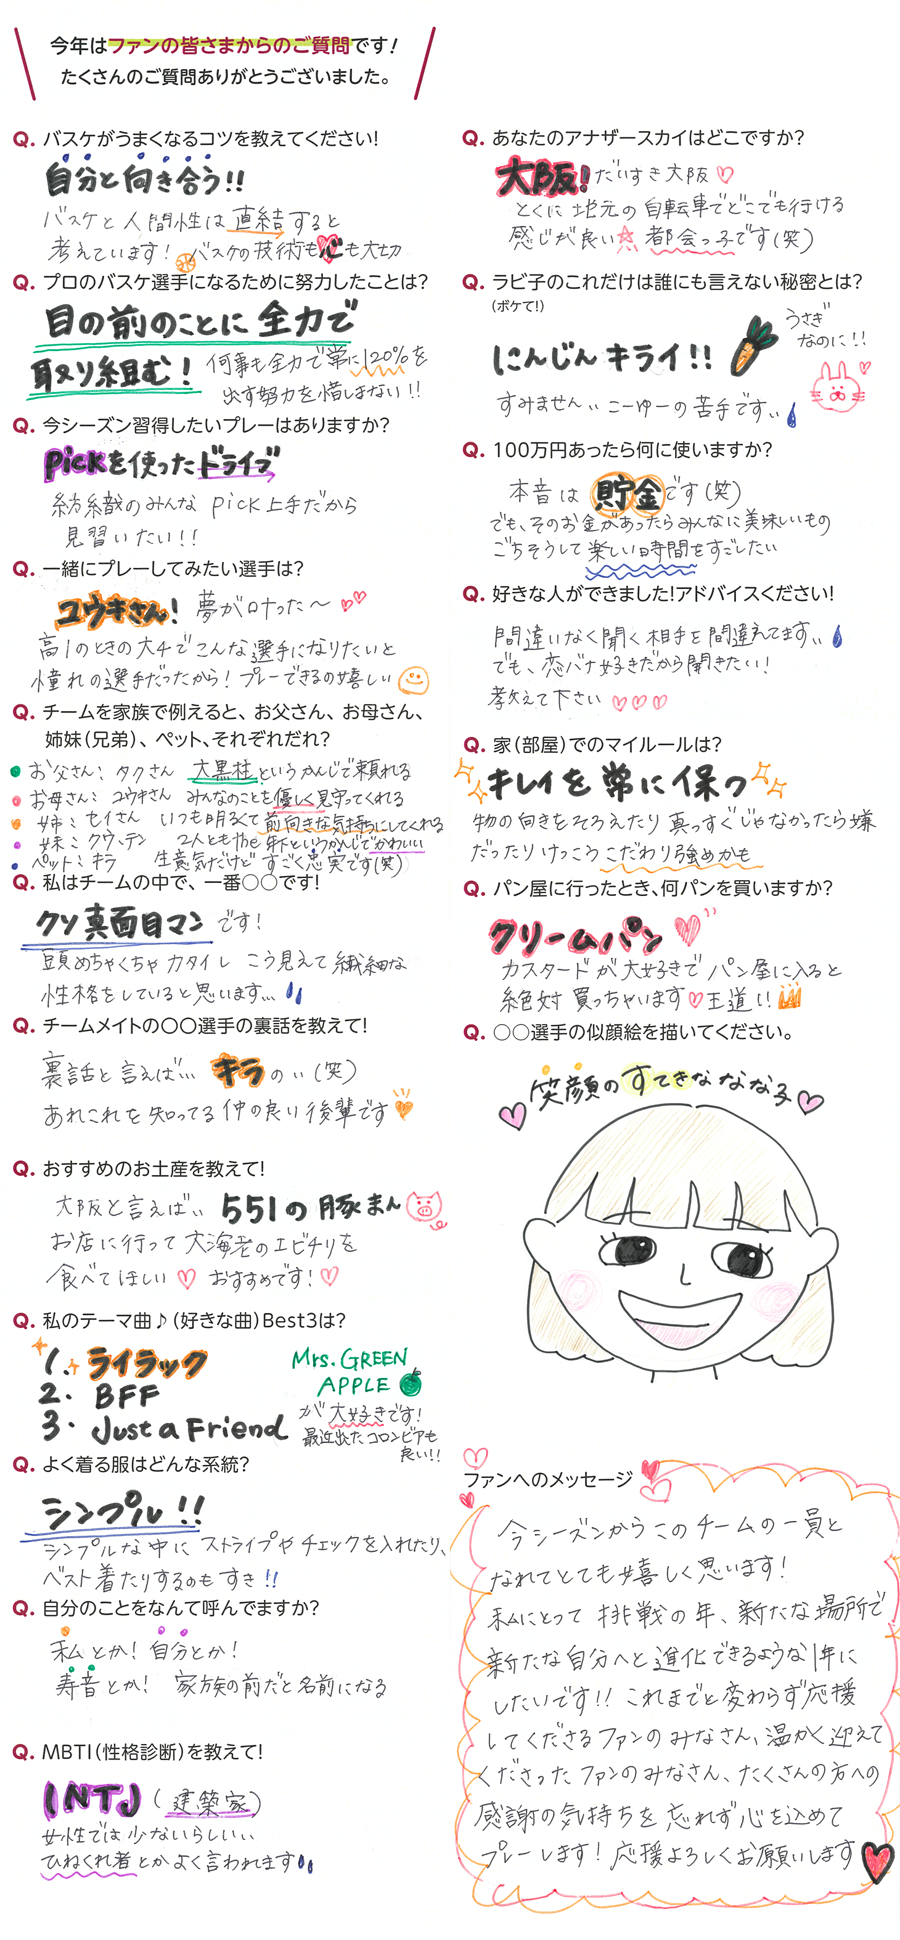 今年はファンの皆さまからのご質問です!
たくさんのご質問ありがとうございました。
Q. バスケがうまくなるコツを教えてください!
自分と向き合う!!
バスケと人間性は直結すると
考えています! バスケの技術も心も大切
Q. プロのバスケ選手になるために努力したことは?
目の前のことに全力で
取り組む! 何事も全力で常に120%を
出す努力を惜しまない!!
Q. 今シーズン習得したいプレーはありますか?
Pickを使ったドライブ
紡織のみんな pick上手だから
見習いたい!!
Q. 一緒にプレーしてみたい選手は?
ユウキさん! 夢が叶った〜
高1のときの大4でこんな選手になりたいと
憧れの選手だったから! プレーできるの嬉しい
Q. チームを家族で例えると、お父さん、お母さん、
姉妹(兄弟)、ペット、それぞれだれ?
お父さん: タクさん 大黒柱というかんじで頼れる
お母さん: ユウキさん みんなのことを優しく見守ってくれる
姉: セイさん いつも明るくて前向きな気持ちにしてくれる
妹: クウ、テン 2人ともthe 妹というかんじでかわいい
ペット: キラ 生意気だけどすごく忠実です(笑)
Q. 私はチームの中で、一番○○です!
クソ真面目マンです!
頭めちゃくちゃカタイし こう見えて繊細な
性格をしていると思います...
Q. チームメイトの〇〇選手の裏話を教えて!
裏話と言えば... キラの..(笑)
あれこれを知ってる仲の良い後輩です
Q. おすすめのお土産を教えて!
大阪と言えば.. 551の豚まん
お店に行って大海老のエビチリを
食べてほしい おすすめです!
Q. 私のテーマ曲♪(好きな曲)Best3は?
1. ライラック
2. BFF
3. Just a Friend
Mrs. GREEN
APPLE
が大好きです!
最近出たコロンビアも
良い!!
Q. よく着る服はどんな系統?
シンプル!!
シンプルな中にストライプやチェックを入れたり、
ベスト着たりするのもすき!!
Q. 自分のことをなんて呼んでますか?
私とか! 自分とか!
寿音とか! 家族の前だと名前になる
Q. MBTI(性格診断)を教えて!
INTJ (建築家)
女性では少ないらしい..
ひねくれ者とかよく言われます
Q. あなたのアナザースカイはどこですか?
大阪! だいすき大阪
とくに地元の自転車でどこでも行ける
感じが良い 都会っ子です(笑)
Q. ラビ子のこれだけは誰にも言えない秘密とは?
(ボケて!)
にんじんキライ!!
うさぎ
なのに!!
すみません.. こーゆーの苦手です..
Q. 100万円あったら何に使いますか?
本音は貯金です(笑)
でも、そのお金があったらみんなに美味しいもの
ごちそうして楽しい時間をすごしたい
Q. 好きな人ができました!アドバイスください!
間違いなく聞く相手を間違えてます..
でも、恋バナ好きだから聞きたい!
教えて下さい
Q. 家(部屋)でのマイルールは?
キレイを常に保つ
物の向きをそろえたり真っすぐじゃなかったら嫌
だったりけっこうこだわり強めかも
Q. パン屋に行ったとき、何パンを買いますか?
クリームパン
カスタードが大好きでパン屋に入ると
絶対買っちゃいます 王道!!
Q. 〇〇選手の似顔絵を描いてください。
笑顔のすてきなななみ
ファンへのメッセージ
今シーズンからこのチームの一員と
なれてとても嬉しく思います!
私にとって挑戦の年、新たな場所で
新たな自分へと進化できるような1年に
したいです!! これまでと変わらず応援
してくださるファンのみなさん、温かく迎えて
くださったファンのみなさん、たくさんの方への
感謝の気持ちを忘れず心を込めて
プレーします! 応援よろしくお願いします